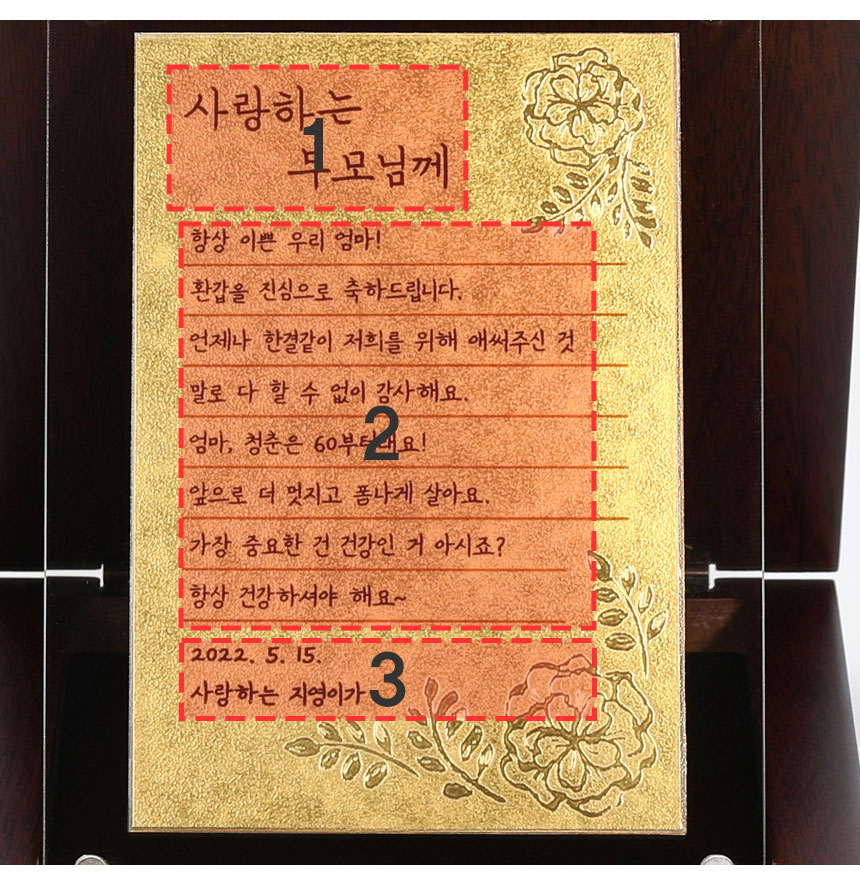 사랑하는
1
부모님께
항상 이쁜 우리 엄마!
환갑을 진심으로 축하드립니다.
언제나 한결같이 저희를 위해 애써주신 것
말로 다 할 수 없이 감사해요.
2
엄마, 청춘은 60부터래요!
앞으로 더 멋지고 폼나게 살아요.
가장 중요한 건 건강인 거 아시죠?
항상 건강하셔야 해요~
2022. 5. 15.
3
사랑하는 지영이가